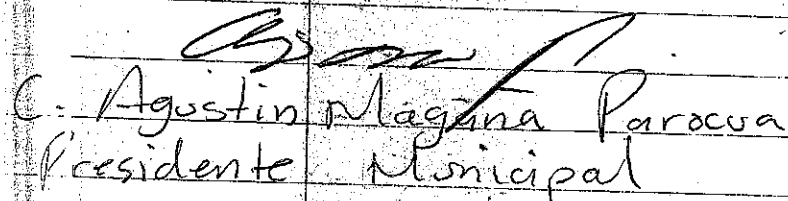 C. Agustin Magaña Parocua
Presidente Municipal